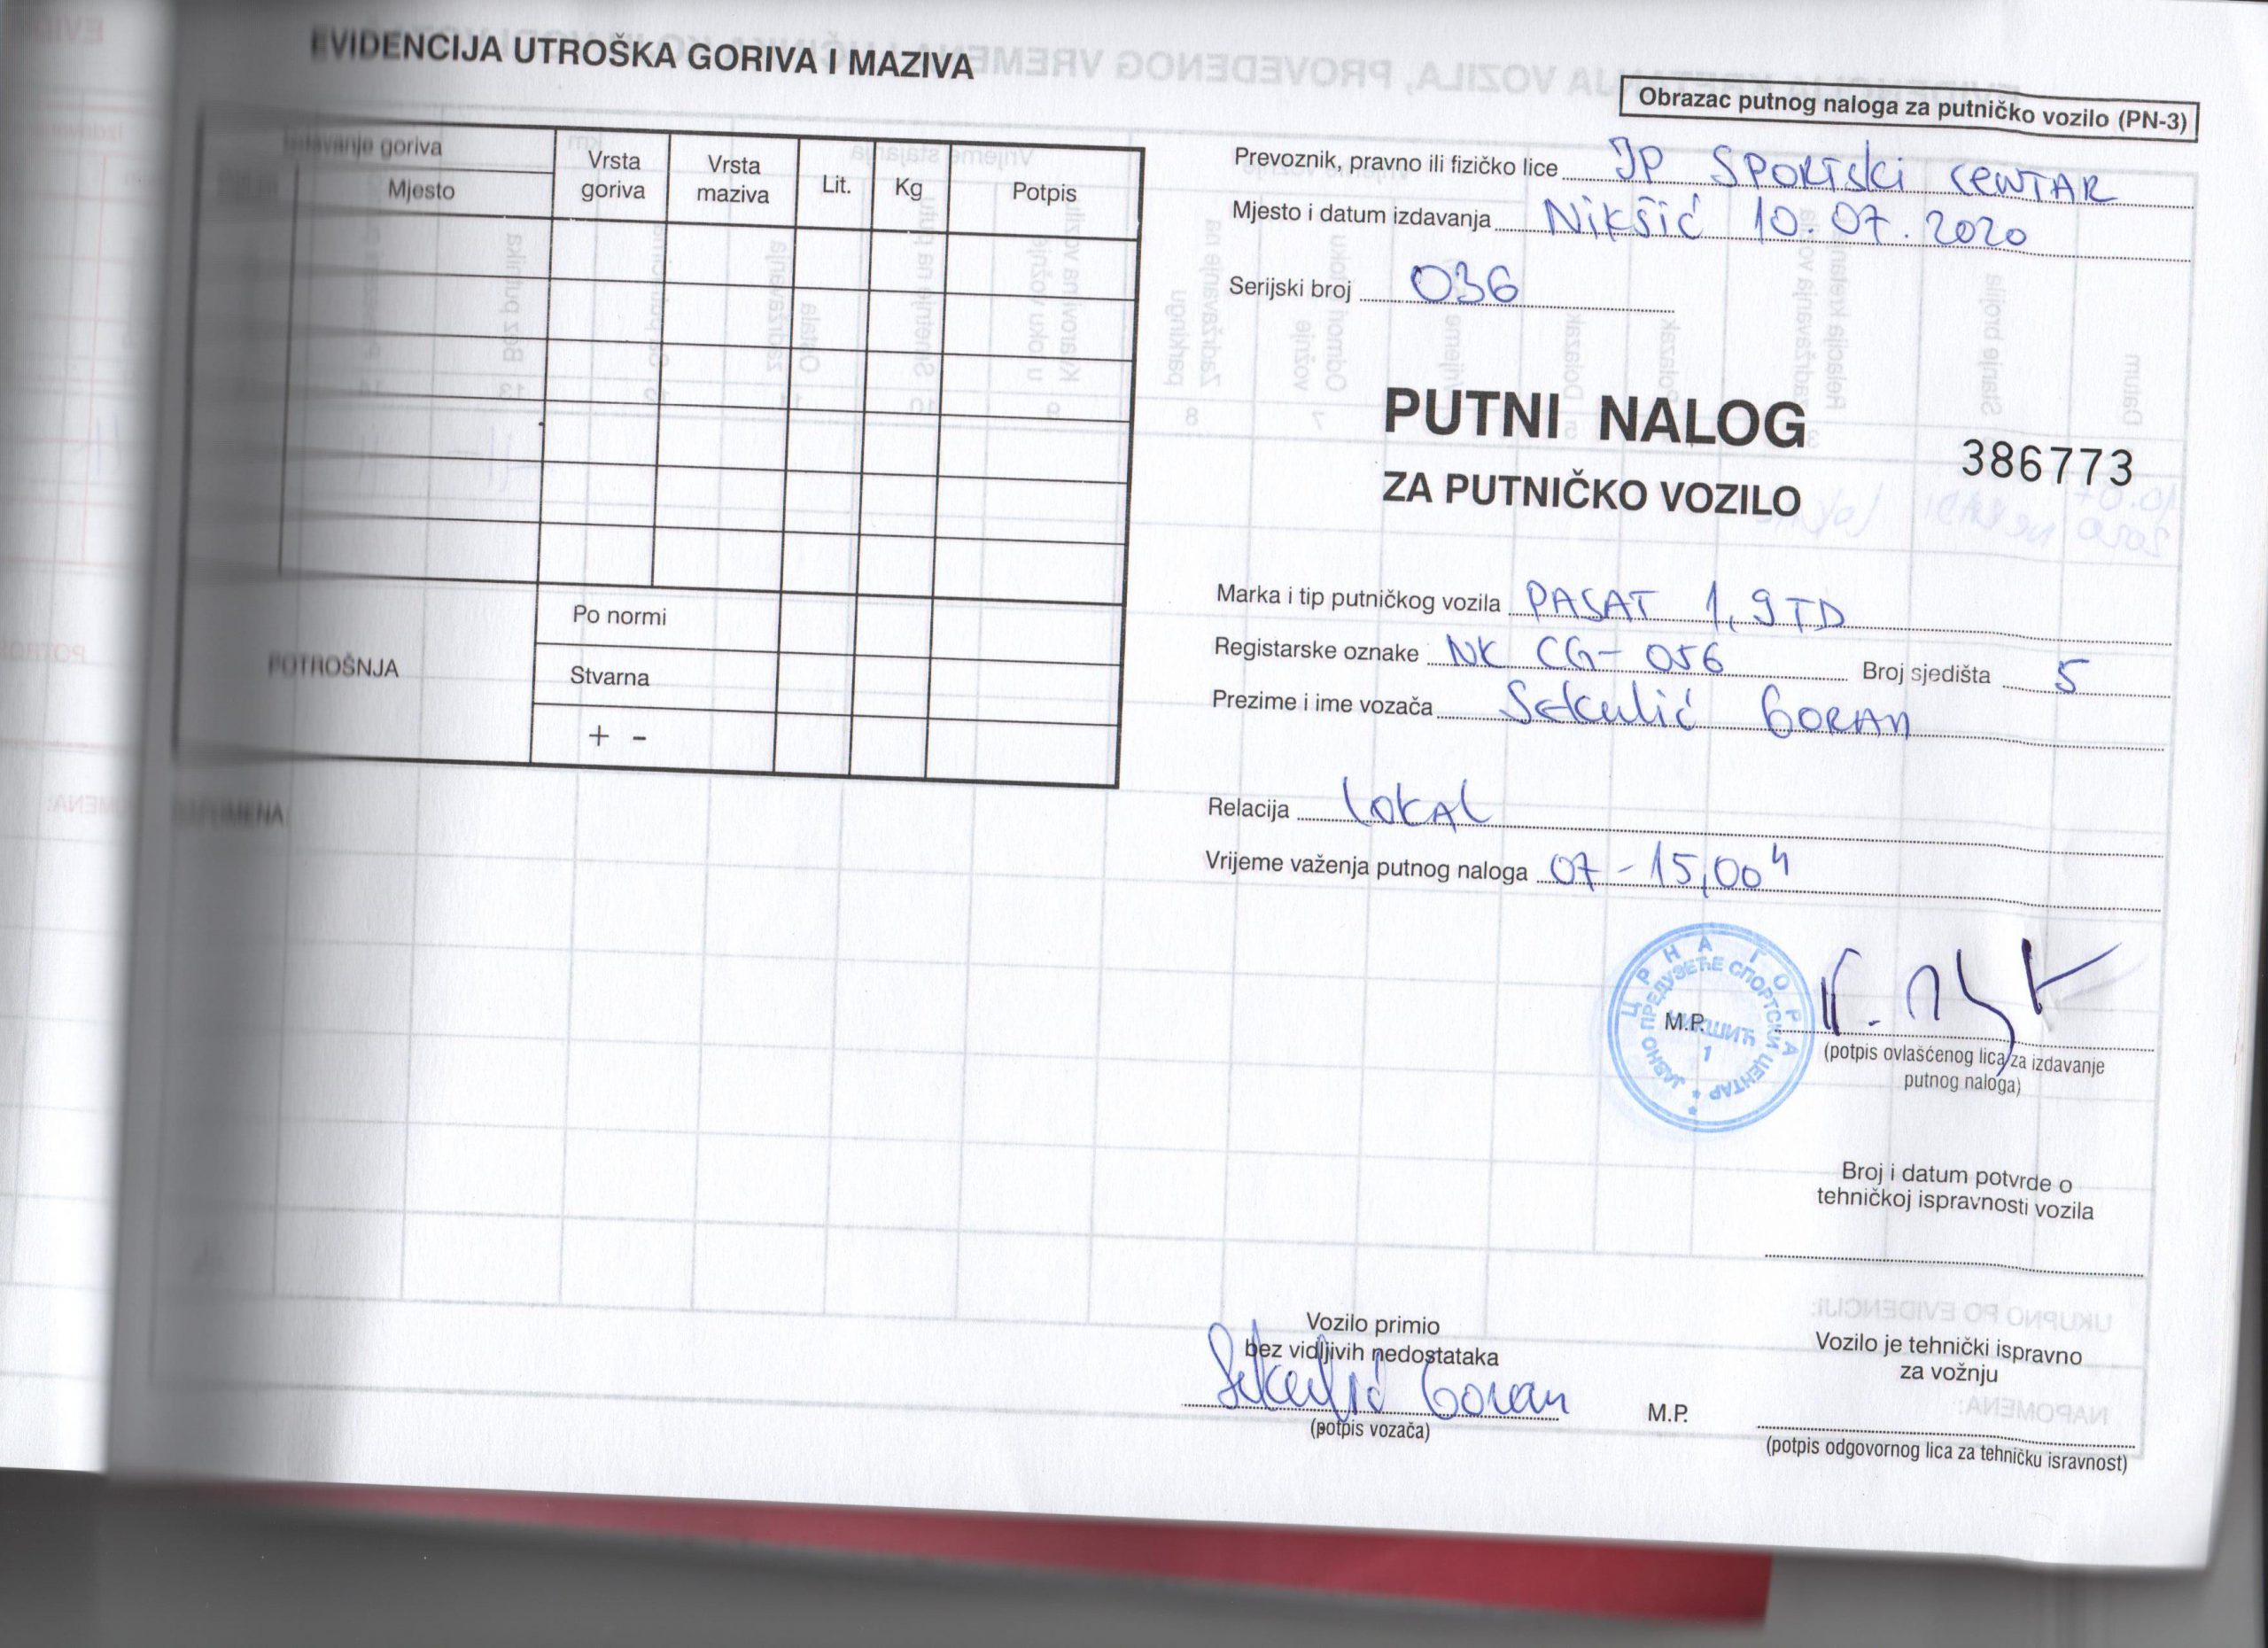 EVIDENCIJA UTROŠKA GORIVA I MAZIVA
Izdavanje goriva
Mjesto
Vrsta goriva
Vrsta maziva
Lit.
Kg
Potpis
POTROŠNJA
Po normi
Stvarna
+ -
NAPOMENA
Obrazac putnog naloga za putničko vozilo (PN-3)
Prevoznik, pravno ili fizičko lice JP SPORTSKI CENTAR
Mjesto i datum izdavanja Nikšić 10.07.2020
Serijski broj 036
PUTNI NALOG
386773
ZA PUTNIČKO VOZILO
Marka i tip putničkog vozila PASAT 1,9TD
Registarske oznake NK CG-056 Broj sjedišta 5
Prezime i ime vozača Sekulić GORAN
Relacija LOKAL
Vrijeme važenja putnog naloga 07-15,00 h
ЦРНА ГОРА
ЈАВНО ПРЕДУЗЕЋЕ СПОРТСКИ ЦЕНТАР
НИКШИЋ
1
M.P.
(potpis ovlašćenog lica za izdavanje
putnog naloga)
Broj i datum potvrde o
tehničkoj ispravnosti vozila
Vozilo primio
bez vidljivih nedostataka
Sekulić Goran
(potpis vozača)
M.P.
Vozilo je tehnički ispravno
za vožnju
(potpis odgovornog lica za tehničku isravnost)